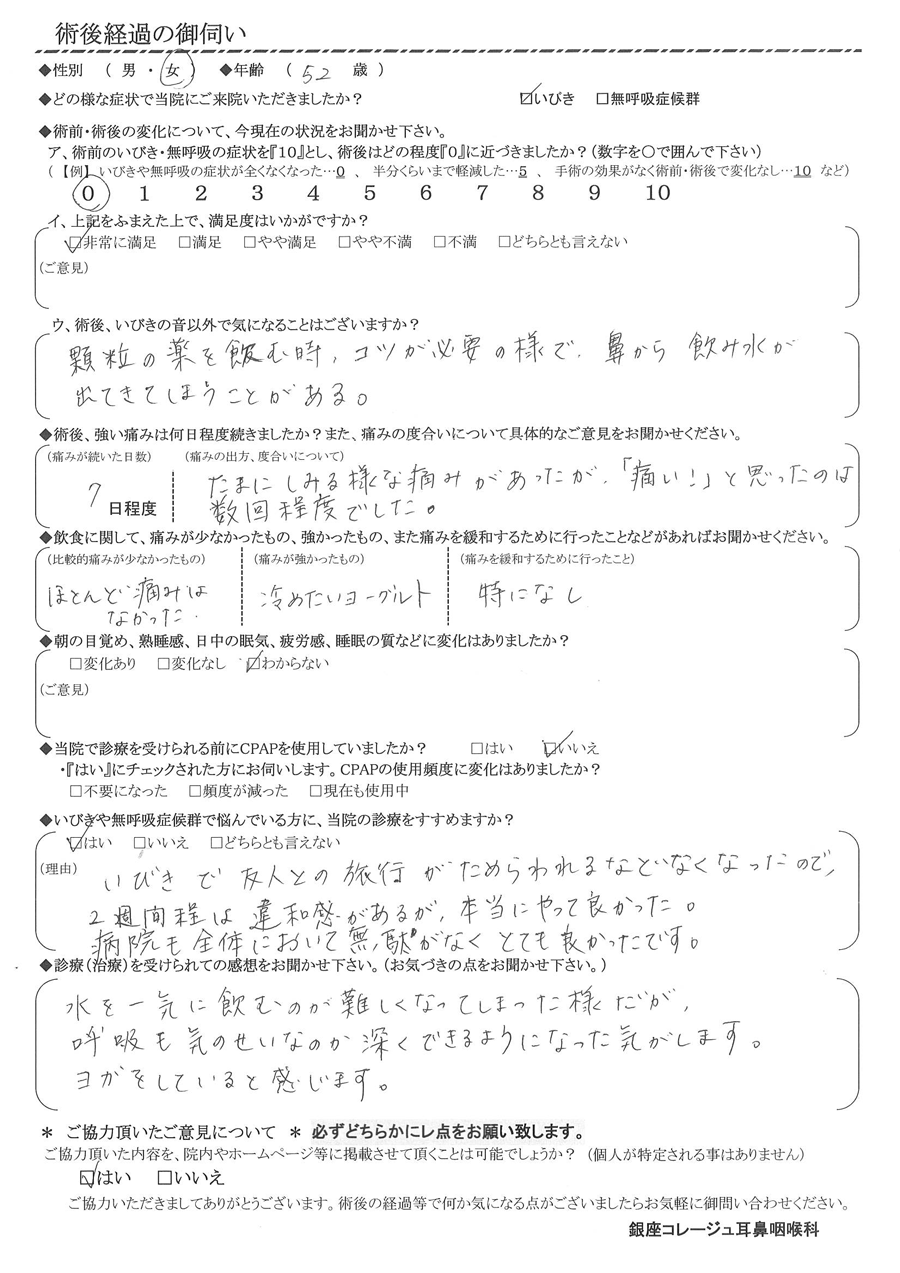 術後経過の御伺い
◆性別 （ 男 ・ 女 ） ◆年齢 （ 52 歳 ）
◆どの様な症状で当院にご来院いただきましたか？ ☑いびき □無呼吸症候群
◆術前・術後の変化について、今現在の状況をお聞かせ下さい。
ア、術前のいびき・無呼吸の症状を『10』とし、術後はどの程度『0』に近づきましたか？（数字を〇で囲んで下さい）
（【例】 いびきや無呼吸の症状が全くなくなった…0 、 半分くらいまで軽減した…5 、 手術の効果がなく術前・術後で変化なし…10 など）
0 1 2 3 4 5 6 7 8 9 10
イ、上記をふまえた上で、満足度はいかがですか？
☑非常に満足 □満足 □やや満足 □やや不満 □不満 □どちらとも言えない
（ご意見）
ウ、術後、いびきの音以外で気になることはございますか？
顆粒の薬を飲む時、コツが必要の様で、鼻から飲み水が
出てきてしまうことがある。
◆術後、強い痛みは何日程度続きましたか？また、痛みの度合いについて具体的なご意見をお聞かせください。
（痛みが続いた日数） （痛みの出方、度合いについて）
7 日程度 たまにしみる様な痛みがあったが、「痛い！」と思ったのは
数回程度でした。
◆飲食に関して、痛みが少なかったもの、強かったもの、また痛みを緩和するために行ったことなどがあればお聞かせください。
（比較的痛みが少なかったもの） （痛みが強かったもの） （痛みを緩和するために行ったこと）
ほとんど痛みは 冷めたいヨーグルト 特になし
なかった.
◆朝の目覚め、熟睡感、日中の眠気、疲労感、睡眠の質などに変化はありましたか？
□変化あり □変化なし ☑わからない
（ご意見）
◆当院で診療を受けられる前にCPAPを使用していましたか？ □はい ☑いいえ
・『はい』にチェックされた方にお伺いします。CPAPの使用頻度に変化はありましたか？
□不要になった □頻度が減った □現在も使用中
◆いびきや無呼吸症候群で悩んでいる方に、当院の診療をすすめますか？
☑はい □いいえ □どちらとも言えない
（理由） いびきで友人との旅行がためらわれるなどなくなったので,
2週間程は違和感があるが、本当にやって良かった。
病院も全体において無駄がなくとても良かったです。
◆診療（治療）を受けられての感想をお聞かせ下さい。（お気づきの点をお聞かせ下さい。）
水を一気に飲むのが難しくなってしまった様だが,
呼吸も気のせいなのか深くできるようになった気がします。
ヨガをしていると感じます。
＊ ご協力頂いたご意見について ＊ 必ずどちらかにレ点をお願い致します。
ご協力頂いた内容を、院内やホームページ等に掲載させて頂くことは可能でしょうか？ （個人が特定される事はありません）
☑はい □いいえ
ご協力いただきましてありがとうございます。術後の経過等で何か気になる点がございましたらお気軽に御問い合わせください。
銀座コレージュ耳鼻咽喉科